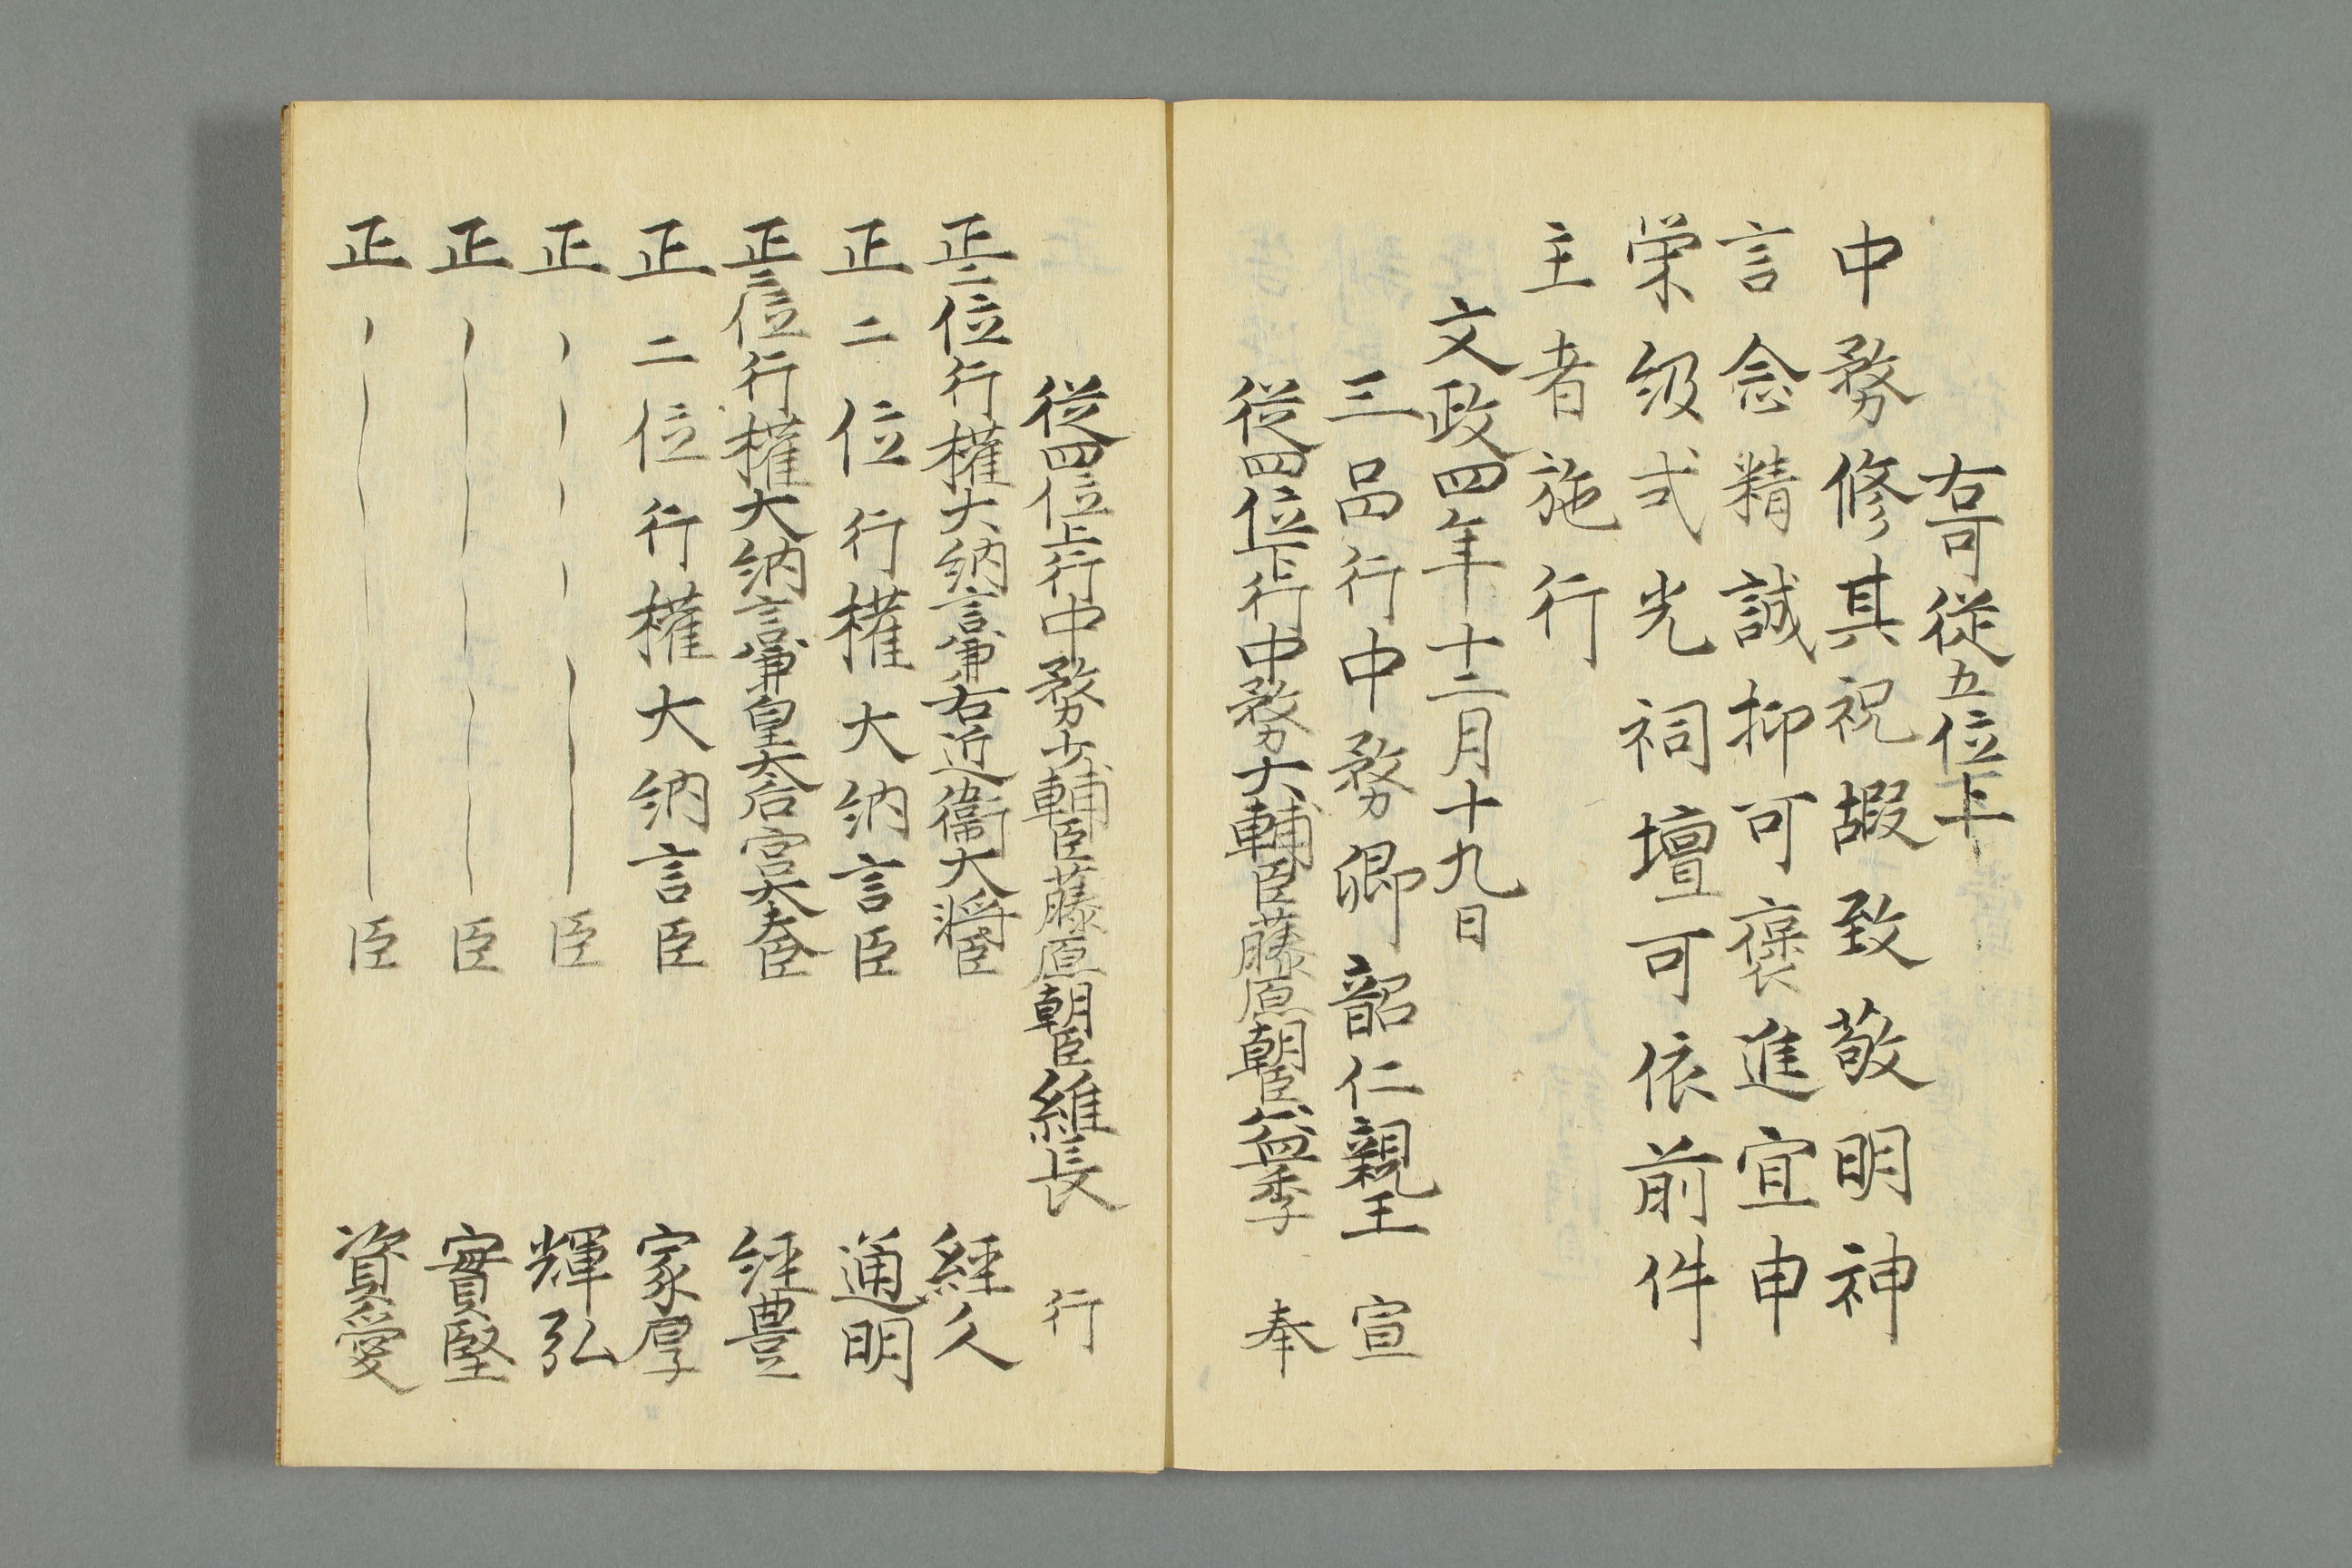 右可従五位下
中務修其祝嘏致敬明神
言念精誠抑可褒進宜申
栄級式光祠壇可依前件
主者施行
文政四年十二月十九日
三品行中務卿韶仁親王 宣
従四位下行中務大輔臣藤原朝臣無季 奉
従四位上行中務少輔臣藤原朝臣維長 行
正二位行権大納言兼右近衛大将臣 経久
正二位行権大納言臣 通明
正三位行権大納言兼皇太后宮大夫臣 経豊
正二位行権大納言臣 家厚
正 臣 輝弘
正 臣 實堅
正 臣 資愛